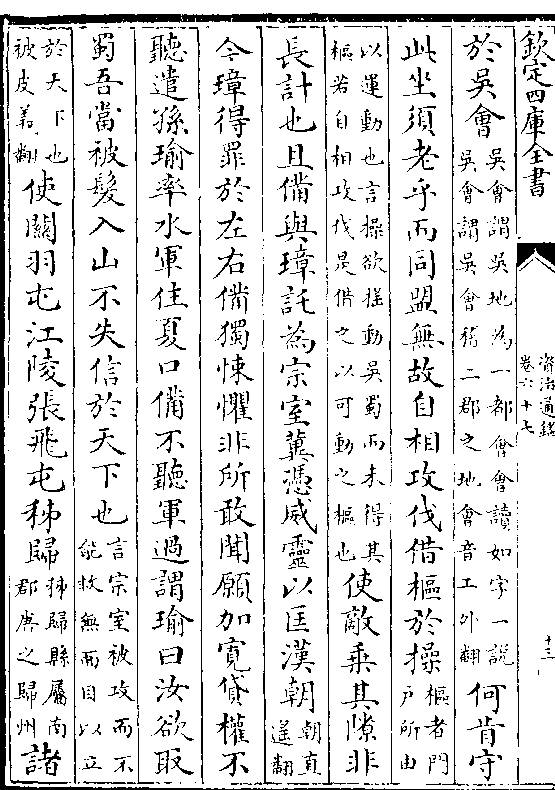 欽定四庫全書
資治通鑑
卷六十七
十三
於吳會吳會謂吳地為一都會會讀如字一說吳會謂吳會稽二郡之地會音工外翻何肯守
此坐須老乎而同盟無故自相攻伐借樞於操樞者門户所由
以運動也言操欲揺動吳蜀而未得其樞若自相攻伐是借之以可動之樞也使敵乗其隙非
長計也且備與璋託為宗室冀憑威靈以匡漢朝朝直遥翻
今璋得罪於左右備獨悚懼非所敢聞願加寛貸權不
聽遣孫瑜率水軍住夏口備不聽軍過謂瑜曰汝欲取
蜀吾當被髮入山不失信於天下也言宗室被攻而不能救無面目以立
於天下也被皮義翻使關羽屯江陵張飛屯秭歸秭歸縣屬南郡唐之歸州諸